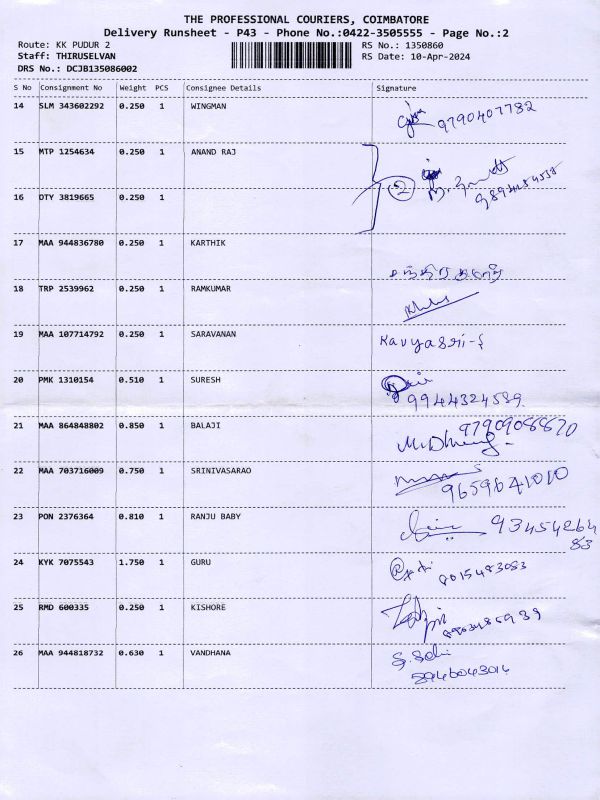 THE PROFESSIONAL COURIERS, COIMBATORE
Delivery Runsheet - P43 - Phone No.:0422-3505555 - Page No.:2
Route: KK PUDUR 2 RS No.: 1350860
Staff: THIRUSELVAN RS Date: 10-Apr-2024
DRS No.: DCJB135086002
S No Consignment No Weight PCS Consignee Details Signature
14 SLM 343602292 0.250 1 WINGMAN 9790407782
15 MTP 1254634 0.250 1 ANAND RAJ
2
16 DTY 3819665 0.250 1
17 MAA 944836780 0.250 1 KARTHIK
18 TRP 2539962 0.250 1 RAMKUMAR
19 MAA 107714792 0.250 1 SARAVANAN
20 PMK 1310154 0.510 1 SURESH
9944324589
21 MAA 864848802 0.850 1 BALAJI 9790908870
22 MAA 703716009 0.750 1 SRINIVASARAO
9659641010
23 PON 2376364 0.810 1 RANJU BABY 93454264
83
24 KYK 7075543 1.750 1 GURU
8015483083
25 RMD 600335 0.250 1 KISHORE
26 MAA 944818732 0.630 1 VANDHANA